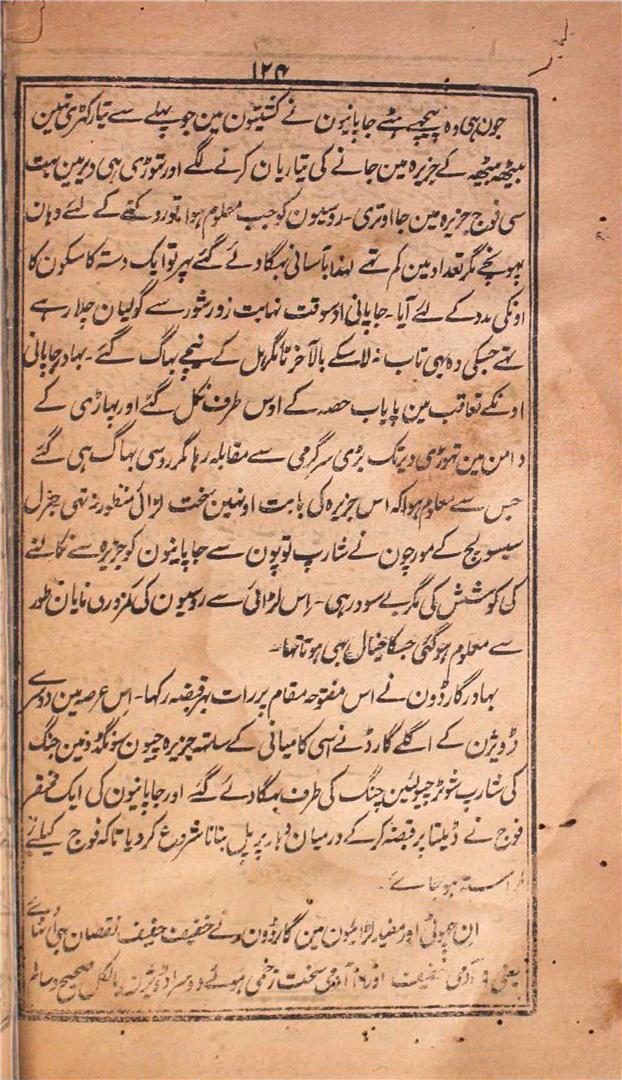 ۱۲۴
جونہی وہ پیچھے ہٹے جاپانیون نے کشتیون مین جو پہلے سے تیار کھڑی تہین
بیٹھہ بیٹھہ کے جزیرہ مین جانے کی تیاریان کرنے لگے اور تہوڑی ہی دیر مین بہت
سی فوج جزیرہ مین جا اوتری۔ روسیون کو جب معلوم ہوا تو روکنے کے لئے وہان
پہونچے مگر تعداد مین کم تھے لہذا بآسانی بہگا دئے گئے پہر تو ایک دستہ کا سکون کا
اونکی مدد کے لئے آیا۔ جاپانی اوسوقت نہایت زور شور سے گولیان چلا رہے
تھے جسکی وہ بہی تاب نہ لا سکے بالآخر ٹائگر ہل کے نیچے بہاگ گئے۔ بہادر جاپانی
اونکے تعاقب مین پایاب حصہ کے اوس طرف نکل گئے اور پہاڑی کے
دامن مین تہوڑی دیر تک بڑی سرگرمی سے مقابلہ رہا مگر روسی بہاگ ہی گئے
جس سے معلوم ہوا کہ اس جزیرہ کی بابت اونہین سخت لڑائی منظور نہ تہی جنرل
سیسولچ کے مورچون نے شارپ توپون سے جاپانیون کو جزیرہ سے نکالنے
کی کوشش کی مگر بے سود رہی۔ اس لڑائی سے روسیون کی کمزوری نمایان طور
سے معلوم ہو گئی جسکا خیال بہی ہوتا تہا۔
بہادر گارڈون نے اس مفتوحہ مقام پر رات بہر قبضہ رکہا۔ اس عرصہ مین دوسرے
ڈویژن کے اگلے گارڈ نے اسی کامیابی کے ساتہہ جزیرہ
کی شارپ کی طرف بہگا دئے گئے اور جاپانیون کی ایک مختصر
فوج نے ڈیلٹا پر قبضہ کر کے درمیان دہار پر پل بنانا شروع کر دیا تاکہ فوج کیلئے
ہو جائے۔
ان چہوٹی اور مفید لڑائیون مین گارڈون نے خفیف خفیف نقصان بہی
یعنی ۹ آدمی خفیف اور ۱۶ آدمی سخت زخمی ہوئے دوسرا ڈویژن بالکل صحیح و سالم